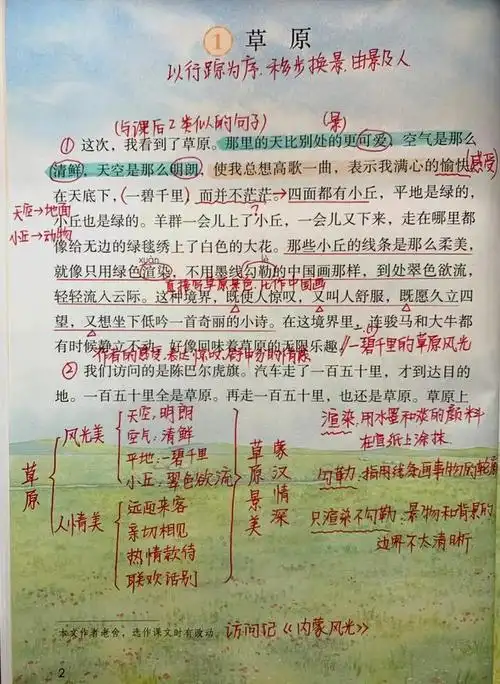 1 草原
以行踪为序，移步换景，由景及人
(与课后2类似的句子) (景)
① 这次，我看到了草原。那里的天比别处的更可爱，空气是那么
清鲜，天空是那么明朗，使我总想高歌一曲，表示我满心的愉快
感受
在天底下，一碧千里，而并不茫茫。四面都有小丘，平地是绿的，
天空→地面
小丘也是绿的。羊群一会儿上了小丘，一会儿又下来，走在哪里都
小丘→动物
像给无边的绿毯绣上了白色的大花。那些小丘的线条是那么柔美，
xuàn gōu
就像只用绿色渲染，不用墨线勾勒的中国画那样，到处翠色欲流，
轻轻流入云际。这种境界，既使人惊叹，又叫人舒服，既愿久立四
望，又想坐下低吟一首奇丽的小诗。在这境界里，连骏马和大牛都
有时候静立不动，好像回味着草原的无限乐趣。
一碧千里的草原风光
② 我们访问的是陈巴尔虎旗。汽车走了一百五十里，才到达目的
地。一百五十里全是草原。再走一百五十里，也还是草原。草原上
草原
风光美
天空：明朗
空气：清鲜
平地：一碧千里
小丘：翠色欲流
人情美
远迎来客
亲切相见
热情款待
联欢话别
草原景美
蒙汉情深
渲染：用水墨和淡的颜料
在宣纸上涂抹
勾勒：指用线条画事物的轮廓
只渲染不勾勒：景物和背景的
边界不太清晰
本文作者老舍，选作课文时有改动。 访问记《内蒙风光》
2